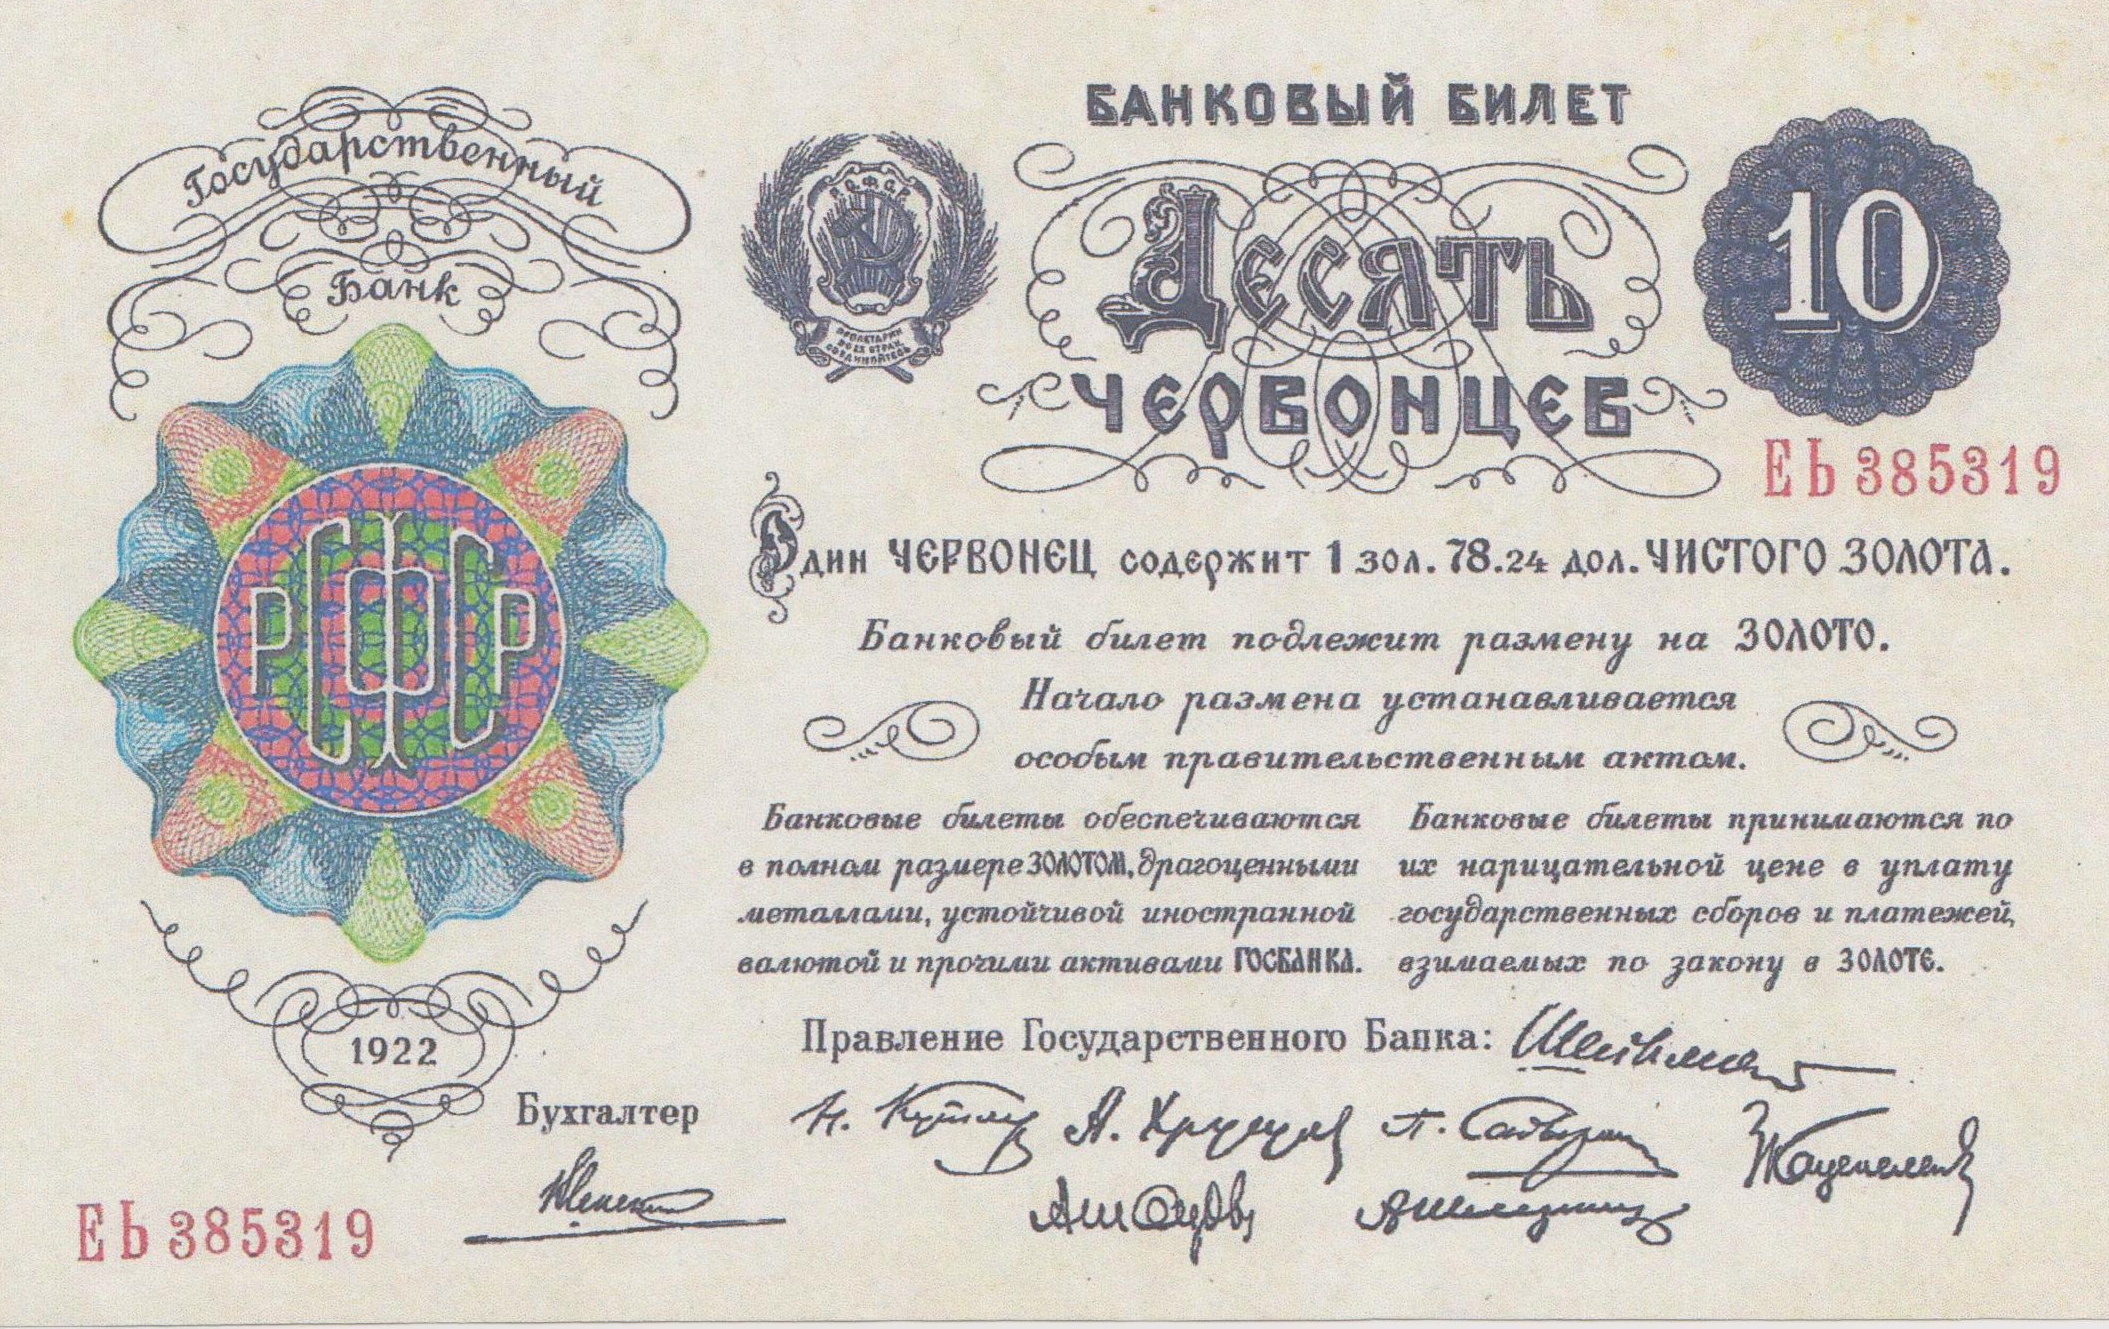 Государственный
Банк
РСФСР
1922
Бухгалтер
ЕЬ 385319
БАНКОВЫЙ БИЛЕТ
Р.С.Ф.С.Р.
ПРОЛЕТАРИИ
ВСЕХ СТРАН,
СОЕДИНЯЙТЕСЬ
ДЕСЯТЬ
ЧЕРВОНЦЕВ
10
ЕЬ 385319
Один ЧЕРВОНЕЦ содержит 1 зол. 78.24 дол. ЧИСТОГО ЗОЛОТА.
Банковый билет подлежит размену на ЗОЛОТО.
Начало размена устанавливается
особым правительственным актом.
Банковые билеты обеспечиваются
в полном размере ЗОЛОТОМ, драгоценными
металлами, устойчивой иностранной
валютой и прочими активами ГОСБАНКА.
Банковые билеты принимаются по
их нарицательной цене в уплату
государственных сборов и платежей,
взимаемых по закону в ЗОЛОТЕ.
Правление Государственного Банка: